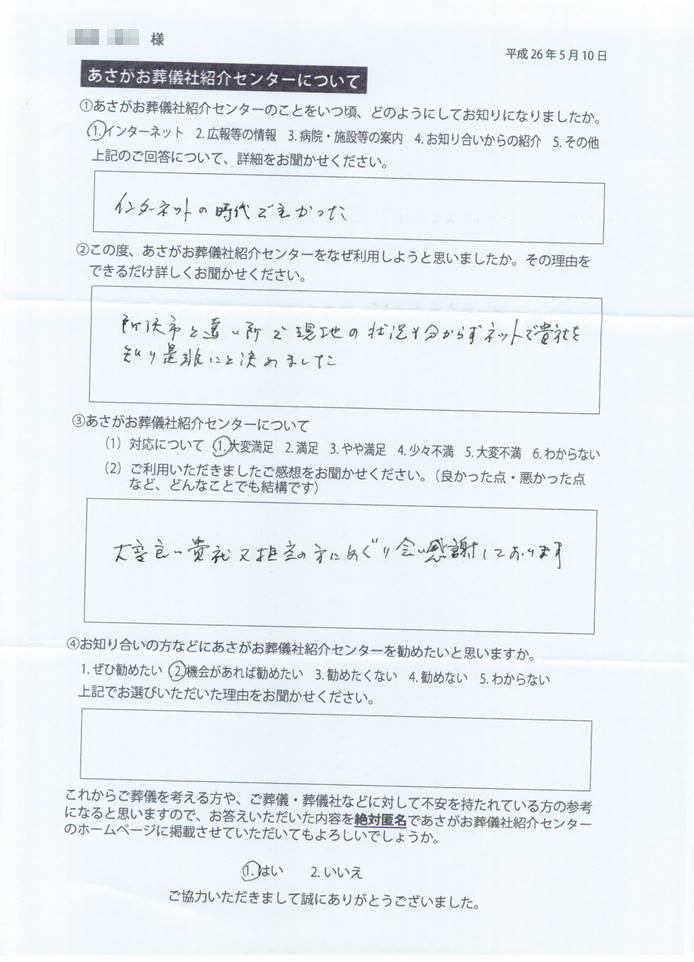 様
平成26年5月10日
あさがお葬儀社紹介センターについて
①あさがお葬儀社紹介センターのことをいつ頃、どのようにしてお知りになりましたか。
1.インターネット 2.広報等の情報 3.病院・施設等の案内 4.お知り合いからの紹介 5.その他
上記のご回答について、詳細をお聞かせください。
インターネットの時代で良かった
②この度、あさがお葬儀社紹介センターをなぜ利用しようと思いましたか。その理由を
できるだけ詳しくお聞かせください。
所沢市と遠い所で現地の状況も分からずネットで貴社を
知り是非にと決めました
③あさがお葬儀社紹介センターについて
(1)対応について 1.大変満足 2.満足 3.やや満足 4.少々不満 5.大変不満 6.わからない
(2)ご利用いただきましたご感想をお聞かせください。(良かった点・悪かった点
など、どんなことでも結構です)
大変良い貴社又担当の方にめぐり会い感謝しております
④お知り合いの方などにあさがお葬儀社紹介センターを勧めたいと思いますか。
1.ぜひ勧めたい 2.機会があれば勧めたい 3.勧めたくない 4.勧めない 5.わからない
上記でお選びいただいた理由をお聞かせください。
これからご葬儀を考える方や、ご葬儀・葬儀社などに対して不安を持たれている方の参考
になると思いますので、お答えいただいた内容を絶対匿名であさがお葬儀社紹介センター
のホームページに掲載させていただいてもよろしいでしょうか。
1.はい 2.いいえ
ご協力いただきまして誠にありがとうございました。